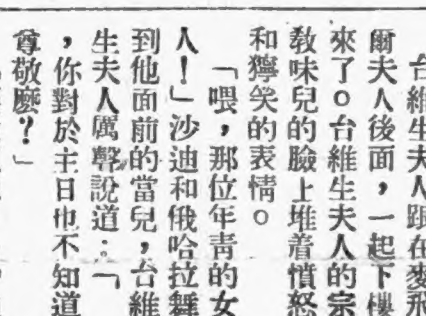 台維生夫人跟在麥飛
爾夫人後面，一起下樓
來了。台維生夫人的宗
教味兒的臉上堆着憤怒
和獰笑的表情。
「喂，那位年青的女
人！」沙迪和俄哈拉舞
到他面前的當兒，台維
生夫人厲聲說道：「
，你對於主日也不知道
尊敬麼？」